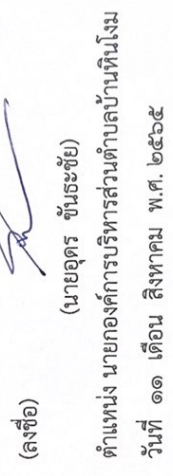 (ลงชื่อ)
(นายอุดร ขันธะชัย)
ตำแหน่ง นายกองค์การบริหารส่วนตำบลบ้านหินโงม
วันที่ ๑๑ เดือน สิงหาคม พ.ศ. ๒๕๖๕